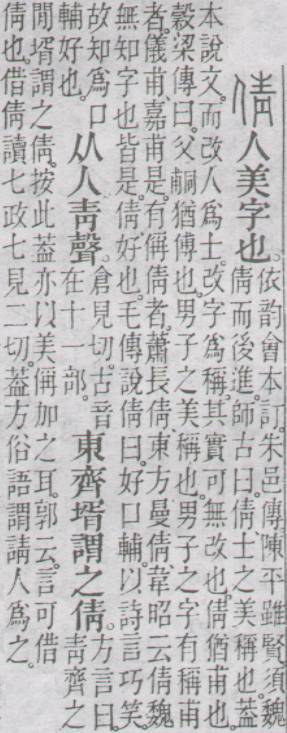 倩人美字也。依韵會本訂。朱邑傳。陳平雖賢。須魏
倩而後進。師古曰。倩士之美稱也。葢
本說文。而改人爲士。改字爲稱。其實可無改也。倩猶甫也。
穀梁傳曰。父嗣猶傅也。男子之美稱也。男子之字有稱甫
者。儀甫嘉甫是。有偁倩者。蕭長倩東方曼倩。韋昭云。倩魏
無知字也。皆是。倩好也。毛傳說倩曰。好口輔。以詩言巧笑。
故知爲口
輔好也。
从人靑聲。倉見切。古音
在十一部。
東齊壻謂之倩。方言曰。
靑齊之
閒壻謂之倩。按此葢亦以美偁加之耳。郭云。言可借
倩也。借倩讀七政七見二切。葢方俗語謂請人爲之。